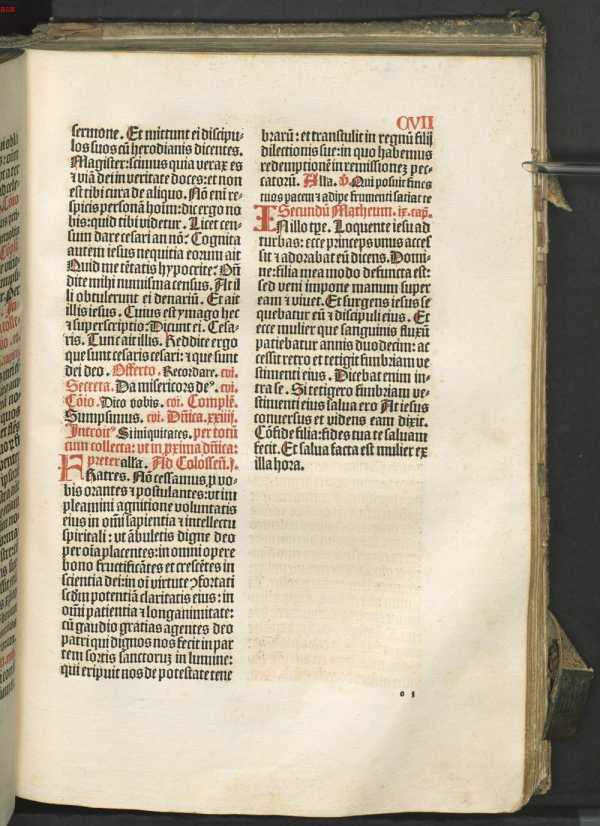 CVII
sermone. Et mittunt ei discipu-
los suos cū herodianis dicentes.
Magister: scimus quia verax es
⁊ viā dei in veritate doces: et non
est tibi cura de aliquo. Nō eni re-
spicis personā hoīm: dic ergo no
bis: quid tibi videtur. Licet cen-
sum dare cesari an nō? Cognita
autem iesus nequitia eorum ait
Quid me tētatis hypocrite? Oñ
dite mihi numisma census. At il
li obtulerunt ei denariū. Et ait
illis iesus. Cuius est ymago hec
⁊ superscriptio? Dicunt ei. Cesa-
ris. Tunc ait illis. Reddite ergo
que sunt cesaris cesari: ⁊ que sunt
dei deo. Offerto. Recordare. cvi.
Secreta. Da misericors de⁹. cvi.
Cōio. Dico vobis. cvi. Complē.
Sumpsimus. cvi. Dñica. xxiiii.
Introit⁹. Si iniquitates. per totū
cum collecta: vt in ꝓxima dñica:
preter alľa. Ad Colossen̄. i.
FRatres. Nō cessamus ꝓ vo-
bis orantes ⁊ postulantes: vt im
pleamini agnitione voluntatis
eius in om̄i sapientia ⁊ intellectu
spiritali: vt ābuletis digne deo
per oīa placentes: in omni opere
bono fructificātes et crescētes in
scientia dei: in oī virtute ꝯfortati
scd̄m potentiā claritatis eius: in
om̄i patientia ⁊ longanimitate:
cū gaudio gratias agentes deo
patri qui dignos nos fecit in par
tem sortis sanctorum in lumine:
qui eripuit nos de potestate tene
brarū: et transtulit in regnū filij
dilectionis sue: in quo habemus
redemptionē in remissionez pec-
catorū. Alľa. ꝟ. Qui posuit fines
tuos pacem ⁊ adipe frumenti satiat te
Secundū Matheum. ix. cap̄.
IN illo tp̄e. Loquente iesu ad
turbas: ecce princeps vnus acces
sit ⁊ adorabat eū dicens. Domi-
ne: filia mea modo defuncta est:
sed veni impone manum super
eam ⁊ viuet. Et surgens iesus se
quebatur eū ⁊ discipuli eius. Et
ecce mulier que sanguinis fluxū
patiebatur annis duodecim: ac
cessit retro et tetigit fimbriam ve
stimenti eius. Dicebat enim in-
tra se. Si tetigero fimbriam ve-
stimenti eius salua ero At iesus
conuersus et videns eam dixit.
Cōfide filia: fides tua te saluam
fecit. Et salua facta est mulier ex
illa hora.